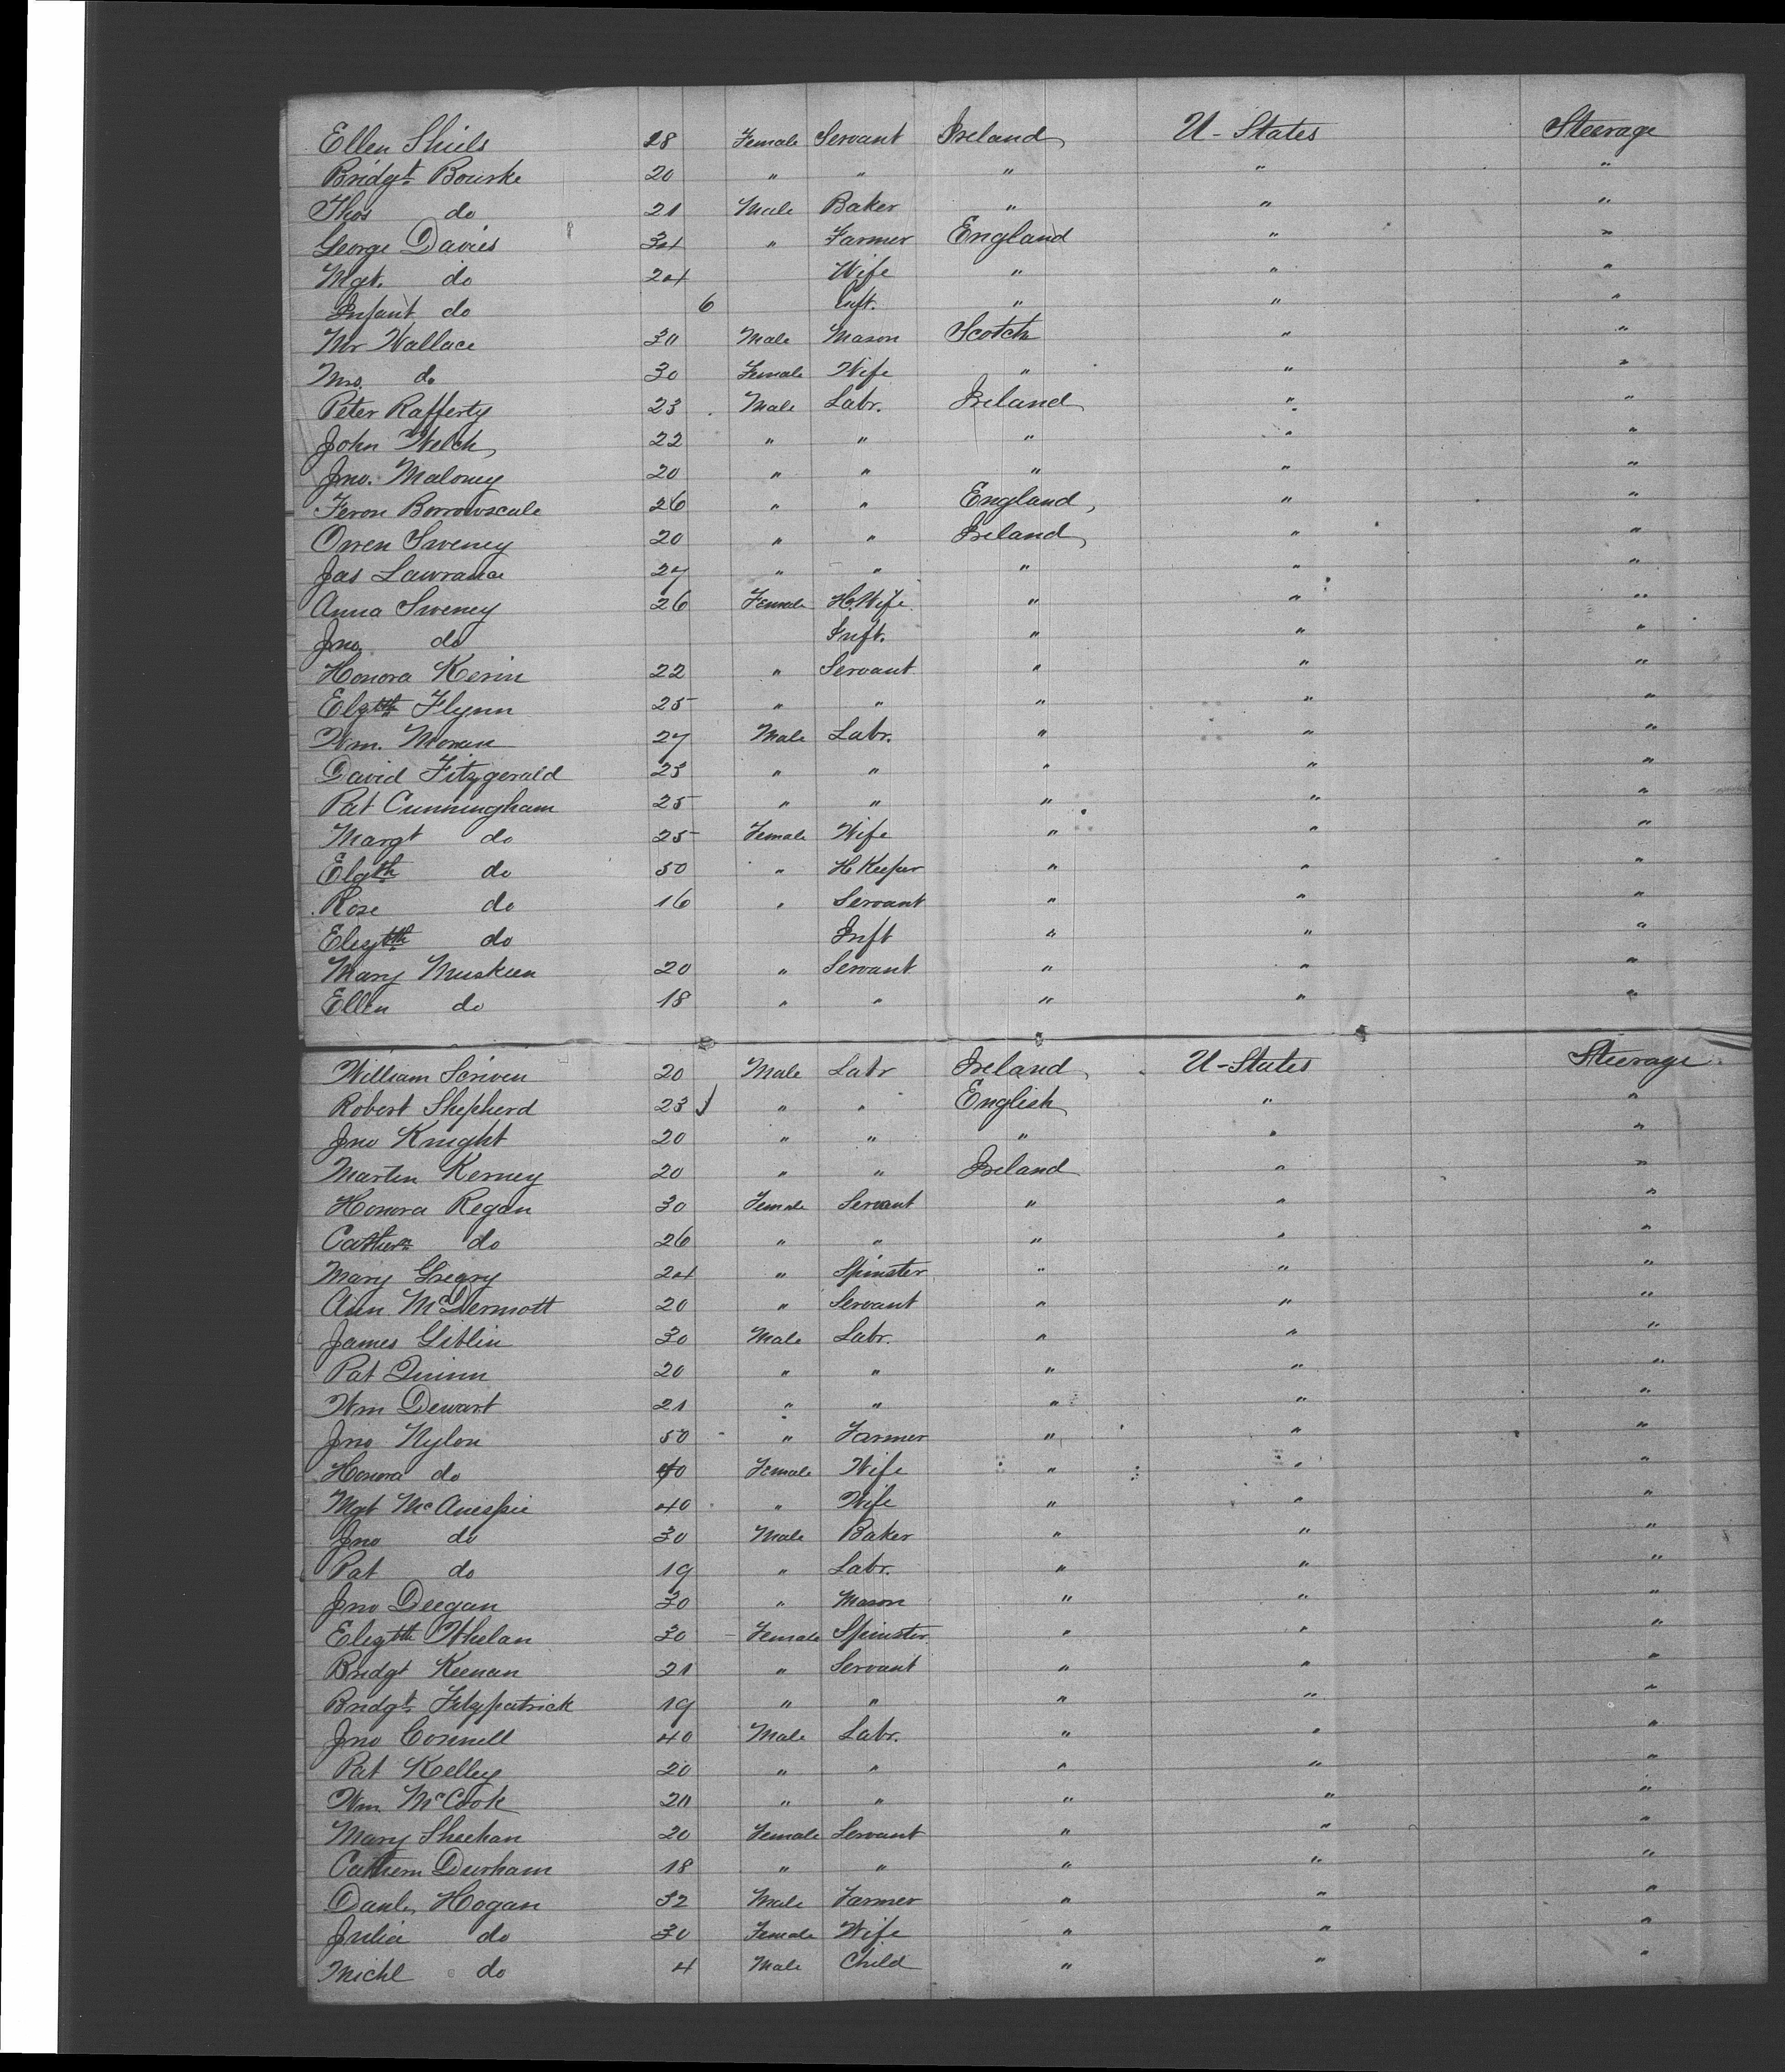 Ellen Shiels 28 Female Servant Ireland U-States Steerage
Bridgt. Bourke 20 " " " " "
Thos do 21 Male Baker " " "
George Davies 34 " Farmer England " "
Mgt. do 24 Wife " " "
Infant do 6 Inft. " " "
Mr Wallace 30 Male Mason Scotch " "
Mrs. do 30 Female Wife " " "
Peter Rafferty 23 Male Labr. Ireland " "
John Welch 22 " " " " "
Jno. Maloney 20 " " " " "
Feron Borrowscale 26 " " England " "
Owen Sweney 20 " " Ireland " "
Jas Lawrance 27 " " " " "
Anna Sweney 26 Female H.Wife " " "
Jno. do Inft. " " "
Honora Kerin 22 " Servant " " "
Elzth Flynn 25 " " " " "
Wm. Moran 27 Male Labr. " " "
David Fitzgerald 23 " " " " "
Pat Cunningham 25 " " " " "
Margt do 25 Female Wife " " "
Elzth do 50 " H Keeper " " "
Rose do 16 " Servant " " "
Elizth do Inft " " "
Mary Muskeen 20 " Servant " " "
Ellen do 18 " " " " "
William Scriven 20 Male Labr Ireland U-States Steerage
Robert Shepherd 23 " " English " "
Jno Knight 20 " " " " "
Martin Kerney 20 " " Ireland " "
Honora Regan 30 Female Servant " " "
Cathern do 26 " " " " "
Mary Greary 24 " Spinster " " "
Ann McDermott 20 " Servant " " "
James Giblin 30 Male Labr. " " "
Pat Quinn 20 " " " " "
Wm Dewart 21 " " " " "
Jno Nylon 50 " Farmer " " "
Honora do 40 Female Wife " " "
Mgt McAnespie 40 " Wife " " "
Jno do 30 Male Baker " " "
Pat do 19 " Labr. " " "
Jno Deegan 30 " Mason " " "
Elizth Whelan 30 Female Spinster " " "
Bridgt Keenan 21 " Servant " " "
Bridgt. Fitzpatrick 19 " " " " "
Jno Connell 40 Male Labr. " " "
Pat Kelley 20 " " " " "
Wm McCook 20 " " " " "
Mary Sheehan 20 Female Servant " " "
Cathern Durham 18 " " " " "
Danl. Hogan 32 Male Farmer " " "
Julia do 30 Female Wife " " "
Michl do 4 Male Child " " "